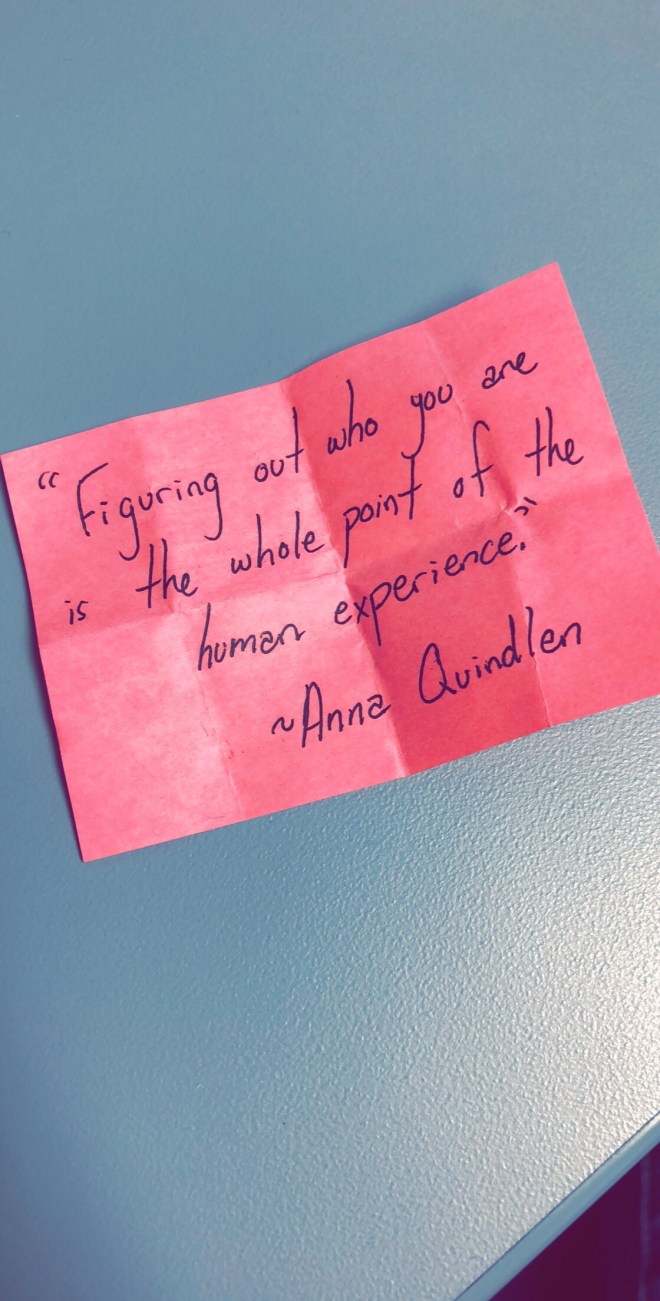 "Figuring out who you are
is the whole point of the
human experience."
~Anna Quindlen